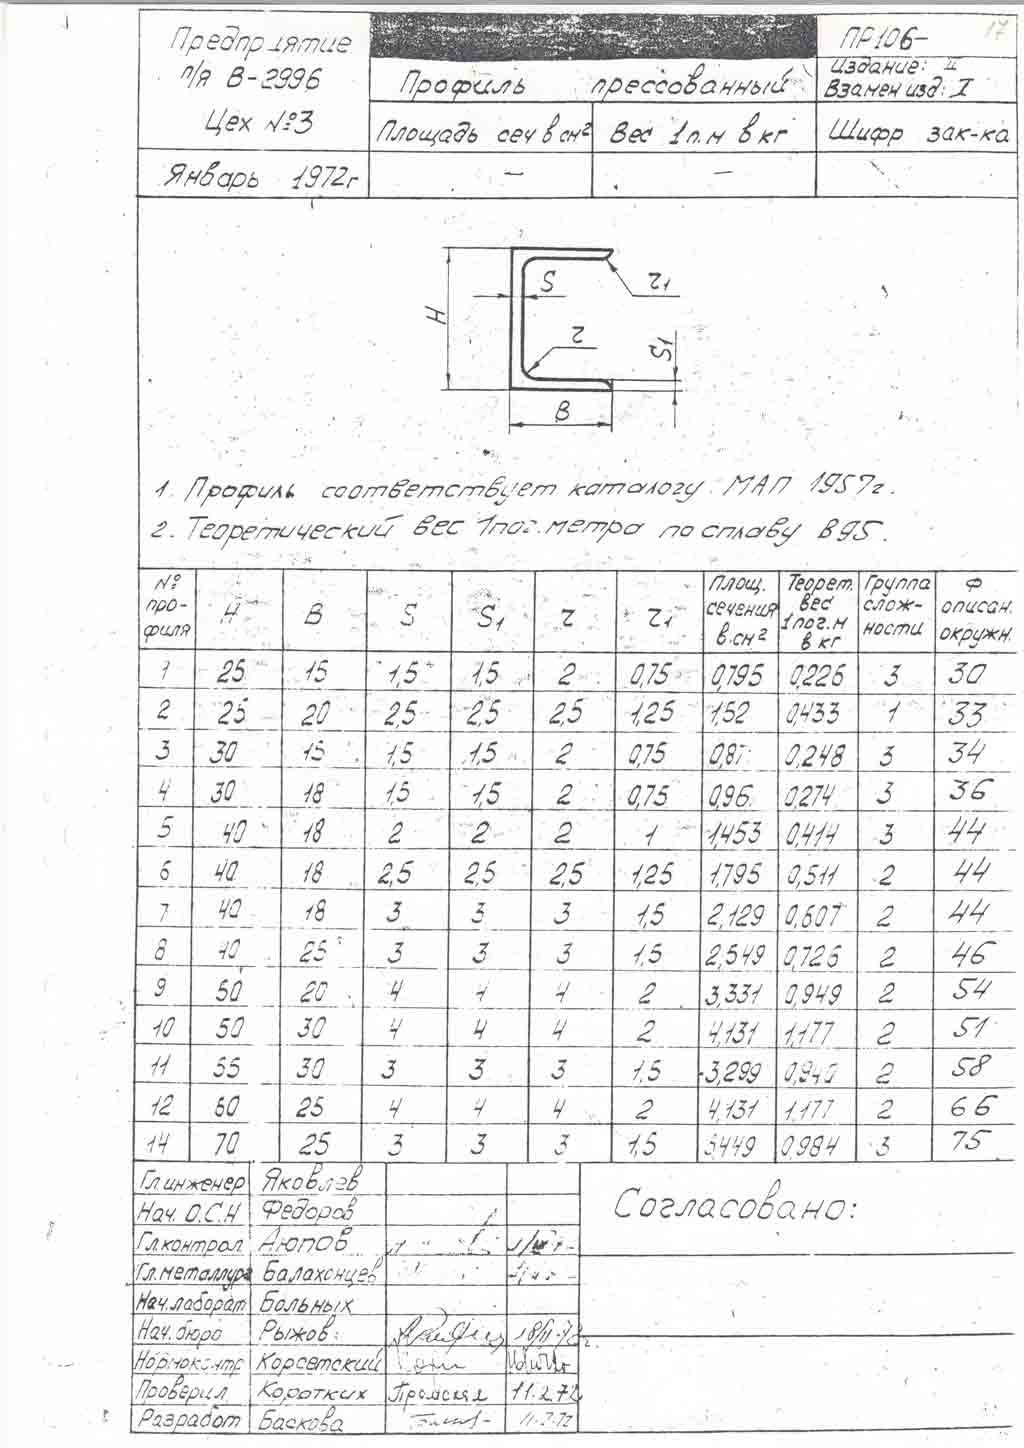 Предприятие
п/я В-2996
Цех №3
Январь 1972г
Профиль прессованный
Площадь сеч в см²
Вес 1п.м в кг
—
—
ПР106-
17
Издание: II
Взамен изд: I
Шифр зак-ка
H
S
r
r1
S1
B
1. Профиль соответствует каталогу МАП 1957г.
2. Теоретический вес 1пог.метра по сплаву В95.
№ про- филя H B S S1 r r1 Площ. сечения в см² Теорет. вес 1пог.м в кг Группа слож- ности Ф описан. окружн.
1 25 15 1,5 1,5 2 0,75 0,795 0,226 3 30
2 25 20 2,5 2,5 2,5 1,25 1,52 0,433 1 33
3 30 15 1,5 1,5 2 0,75 0,87 0,248 3 34
4 30 18 1,5 1,5 2 0,75 0,96 0,274 3 36
5 40 18 2 2 2 1 1,453 0,414 3 44
6 40 18 2,5 2,5 2,5 1,25 1,795 0,511 2 44
7 40 18 3 3 3 1,5 2,129 0,607 2 44
8 40 25 3 3 3 1,5 2,549 0,726 2 46
9 50 20 4 4 4 2 3,331 0,949 2 54
10 50 30 4 4 4 2 4,131 1,177 2 51
11 55 30 3 3 3 1,5 3,299 0,940 2 58
12 60 25 4 4 4 2 4,131 1,177 2 66
14 70 25 3 3 3 1,5 3,449 0,984 3 75
Гл.инженер Яковлев
Нач. О.С.Н Федоров
Гл.контрол Аюпов
Гл.металлург Балахонцев
Нач.лаборат Больных
Нач.бюро Рыжов
Нормоконтр Корсетский
Проверил Коротких 11.2.72
Разработ Баскова 11.2.72
Согласовано: